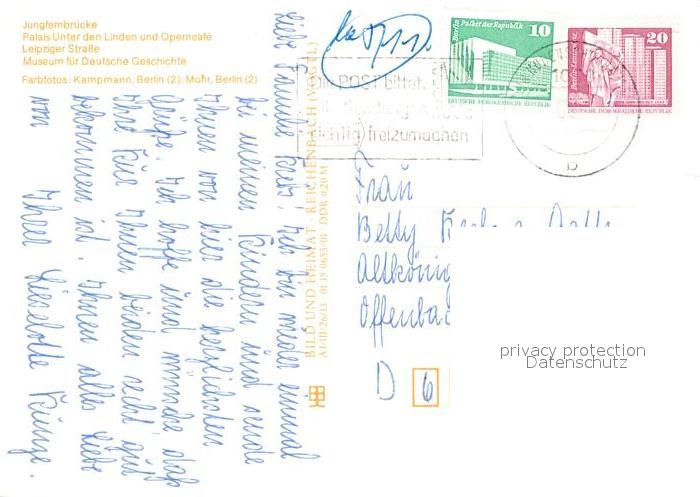 Jungfernbrücke
Palais Unter den Linden und Operncafé
Leipziger Straße
Museum für Deutsche Geschichte
Farbfotos: Kampmann, Berlin (2); Mohr, Berlin (2)
Berlin Palast der Republik 10
DEUTSCHE DEMOKRATISCHE REPUBLIK
20
DEUTSCHE DEMOKRATISCHE REPUBLIK
Die POST bittet,
richtig freizumachen
b
Liebe Familie Bin wieder einmal
bei meinen Kindern und sende
Ihnen von hier die herzlichsten
Grüße. Ich hoffe und wünsche daß
Ihre Kur Ihnen beiden recht gut
bekommen ist. Ihnen alles Liebe
von Ihrer Lieselotte
BILD UND HEIMAT · REICHENBACH (VOGTL)
A1/III/26/13 01 15 0655/01 DDR 0,20 M
Frau
Betty
Altkönig
Offenbac
D 6
privacy protection
Datenschutz